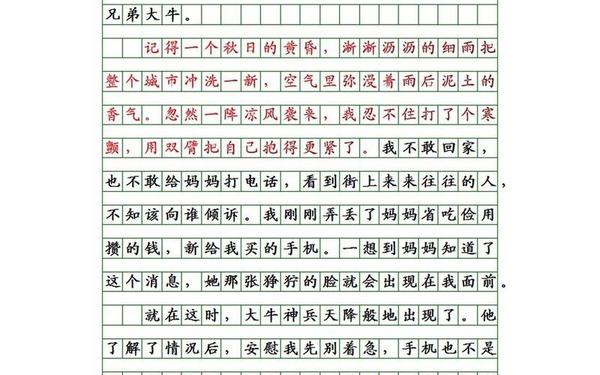 兄弟大牛。
记得一个秋日的黄昏，淅淅沥沥的细雨把
整个城市冲洗一新，空气里弥漫着雨后泥土的
香气。忽然一阵凉风袭来，我忍不住打了个寒
颤，用双臂把自己抱得更紧了。我不敢回家，
也不敢给妈妈打电话，看到街上来来往往的人，
不知该向谁倾诉。我刚刚弄丢了妈妈省吃俭用
攒的钱，新给我买的手机。一想到妈妈知道了
这个消息，她那张狰狞的脸就会出现在我面前。
就在这时，大牛神兵天降般地出现了。他
了解了情况后，安慰我先别着急，手机也不是